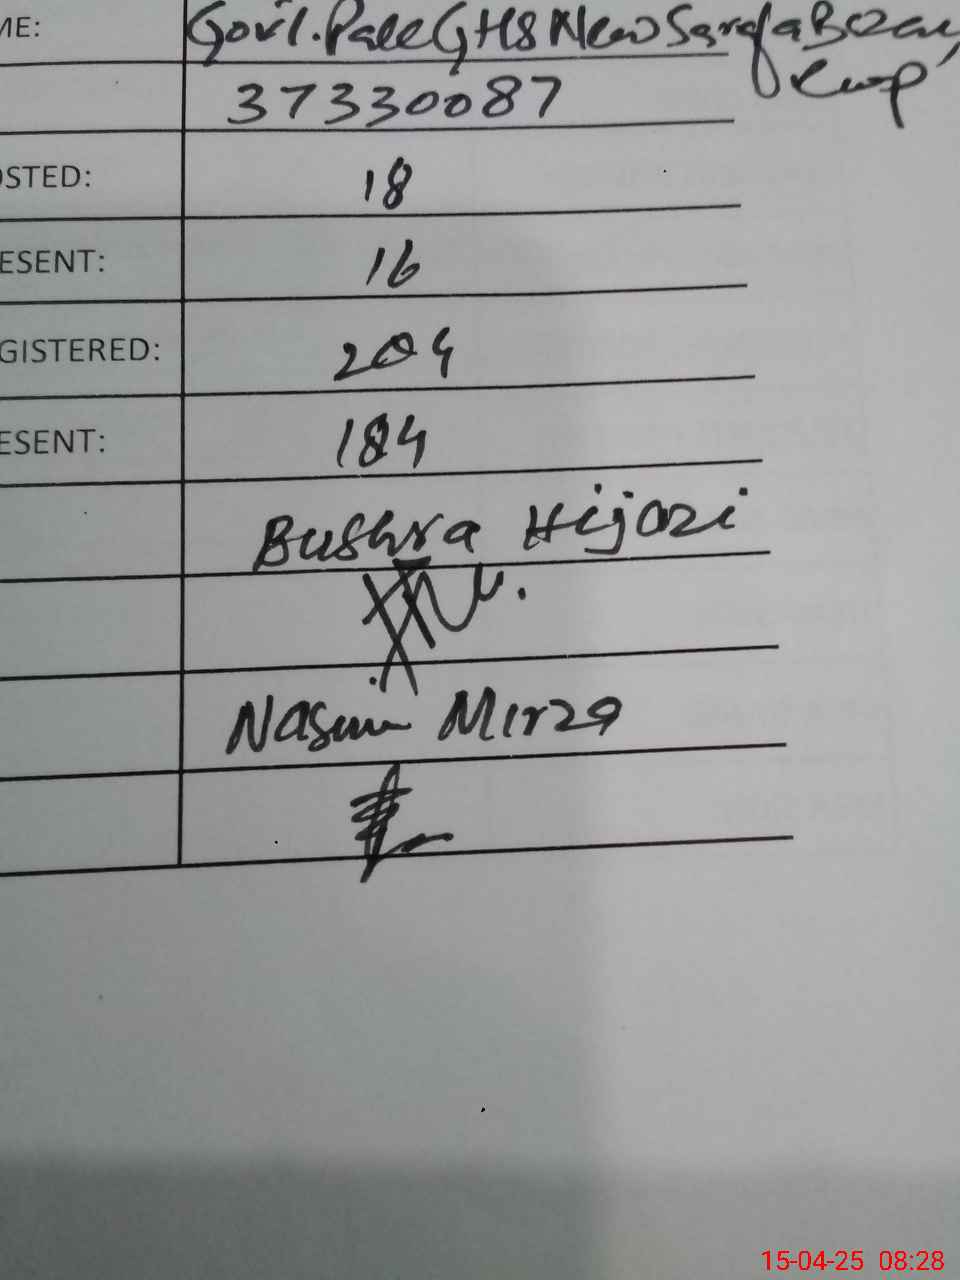 ME: Govt. Pak G H S New Sarafa Bazar,
Rwp
37330087
OSTED: 18
ESENT: 16
GISTERED: 204
ESENT: 184
Bushra Hijazi
Nasim Mirza
15-04-25 08:28